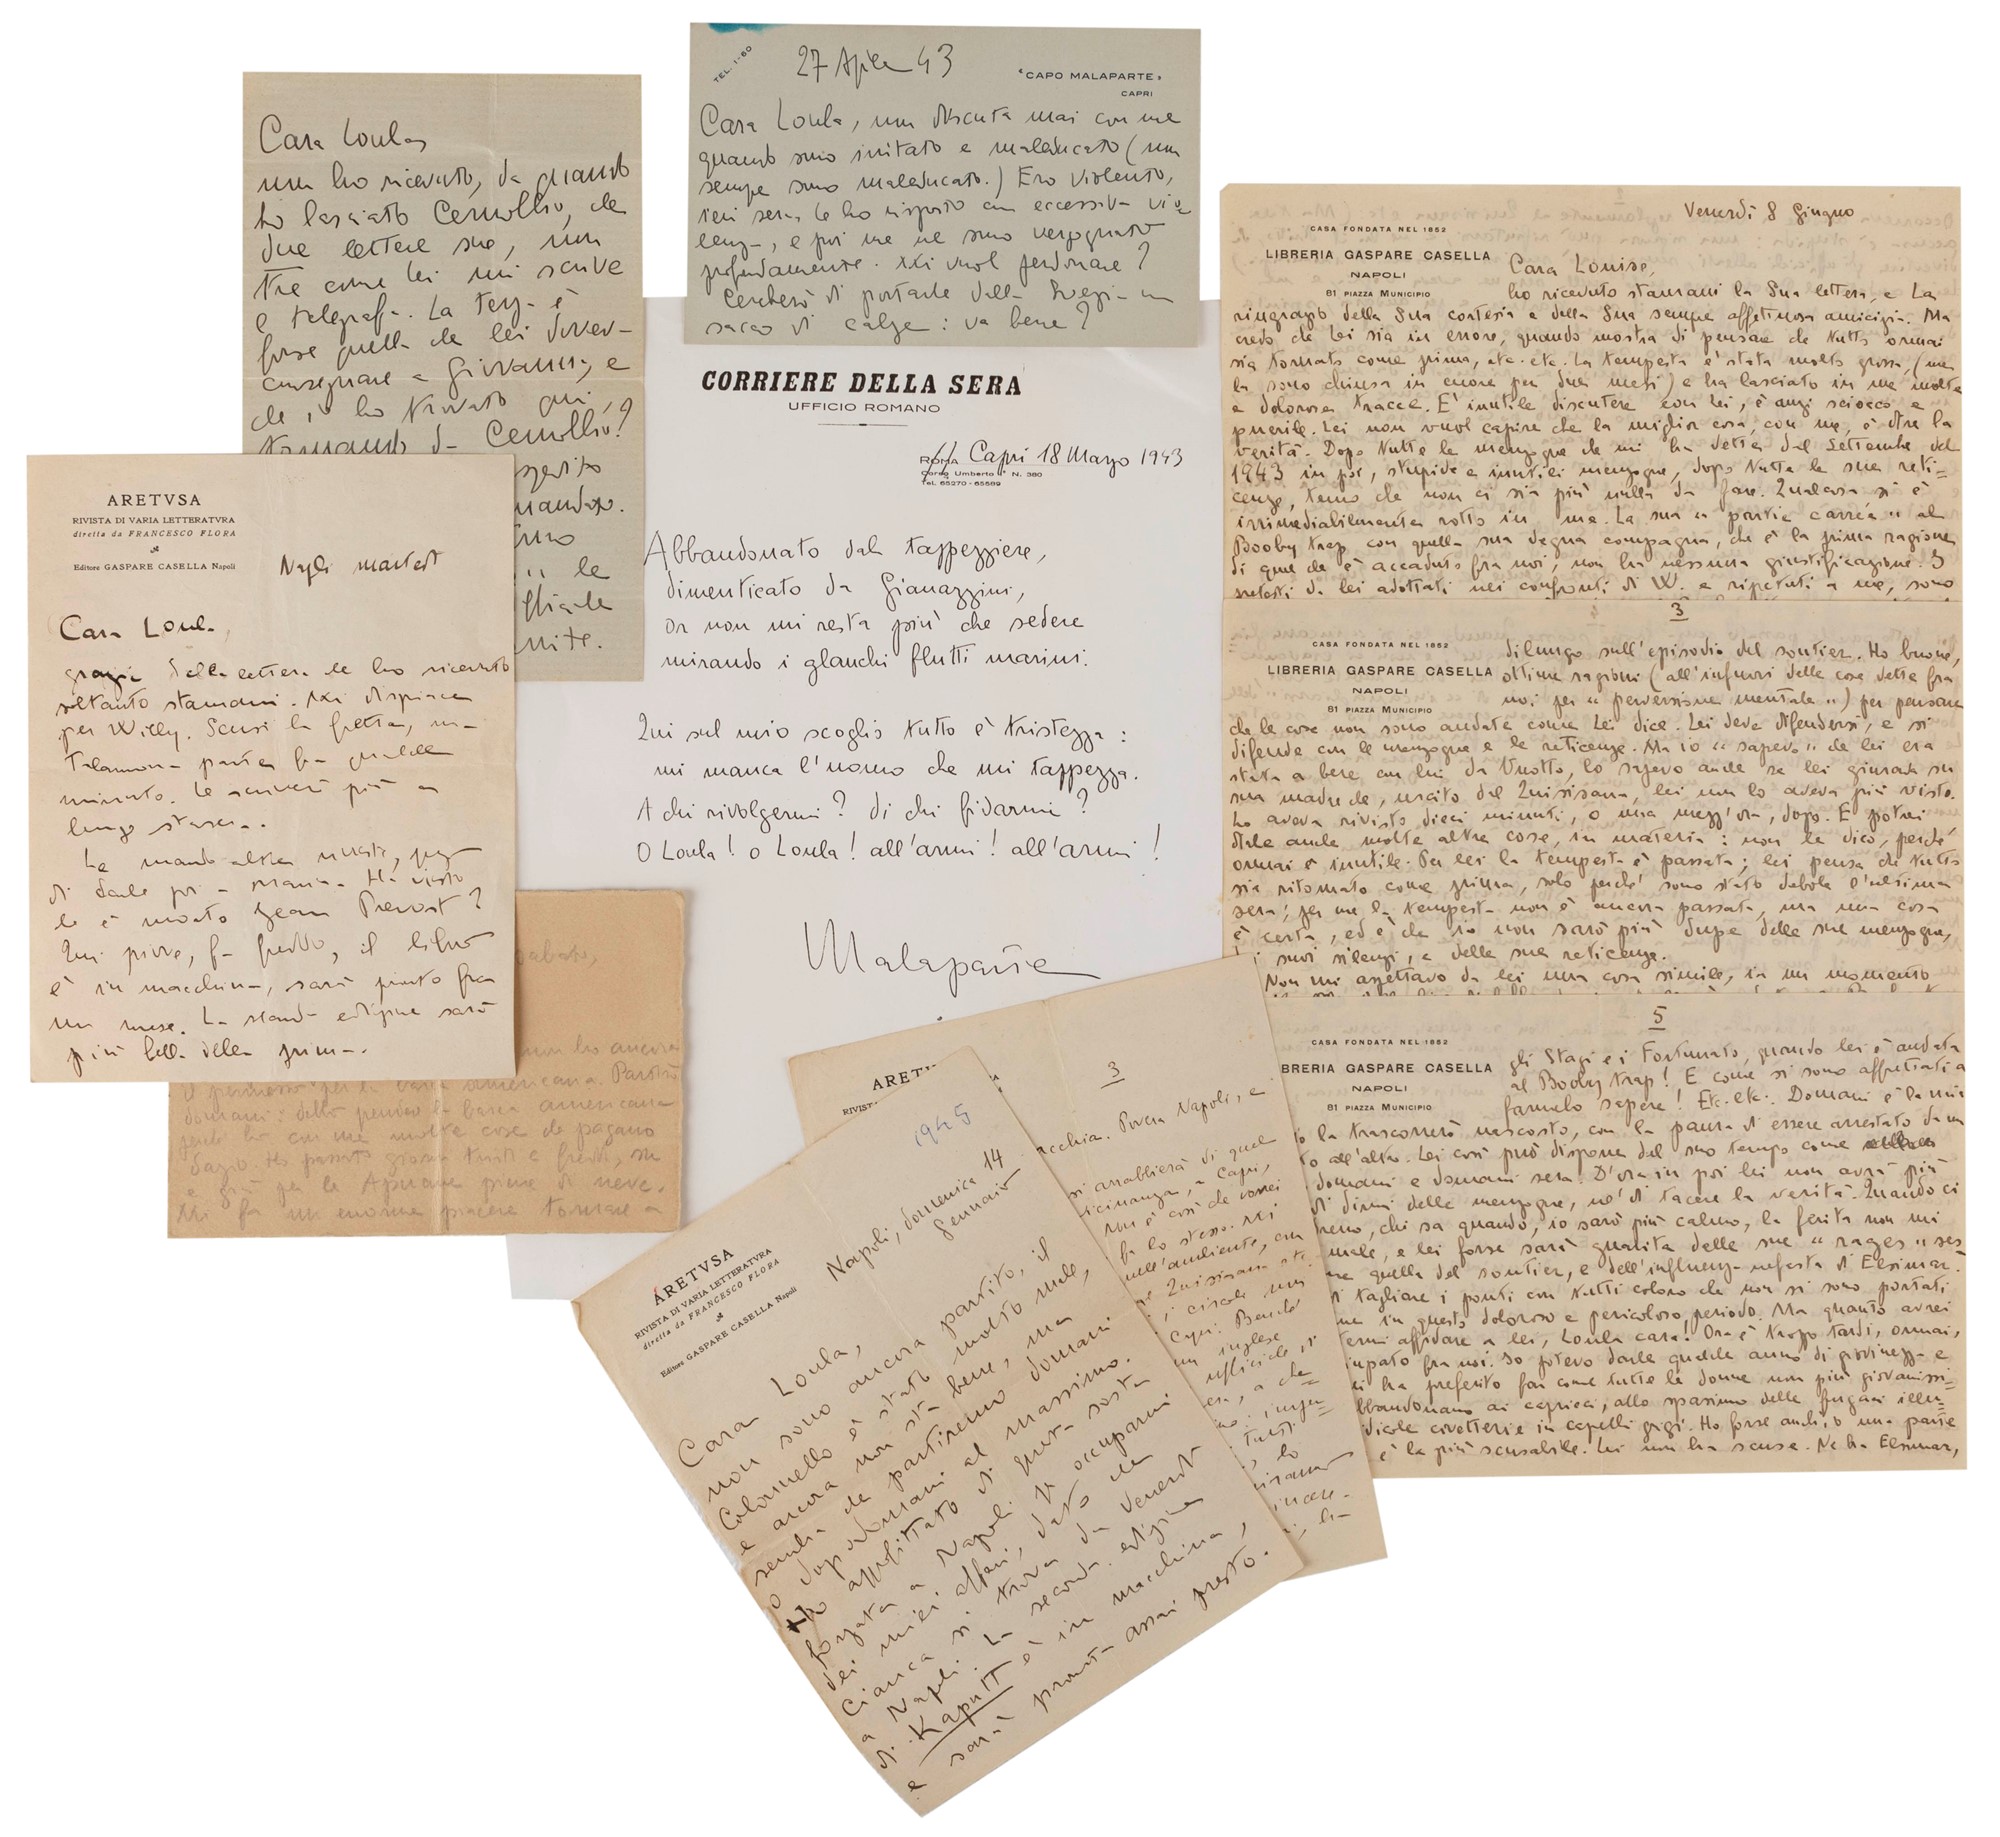 Cara Loula,
non ho ricevuto, da quando
ho lasciato Cernobbio, che
due lettere sue, non
tre come lei mi scrive
e telegrafa. La terza è
forse quella che lei doveva
consegnare a Giovanni, e
che io ho trovato qui,
tornando da Cernobbio?
TEL. 1-60
27 Aprile 43
"CAPO MALAPARTE"
CAPRI
Cara Loula, non discuta mai con me
quando sono irritato e maleducato (non
sempre sono maleducato.) Ero violento,
ieri sera, le ho risposto con eccessiva vio=
lenza, e poi me ne sono vergognato
profondamente. Mi vuol perdonare?
Cercherò di portarle dalla Svezia un
sacco di calze: va bene?
CORRIERE DELLA SERA
UFFICIO ROMANO
ROMA
Corso Umberto I° N. 380
Tel. 65270 - 65589
Capri 18 Marzo 1943
Abbandonato dal tappezziere,
dimenticato da Gianazzini,
or non mi resta più che sedere
mirando i glauchi flutti marini.
Qui sul mio scoglio tutto è tristezza:
mi manca l'uomo che mi tappezza.
A chi rivolgermi? di chi fidarmi?
O Loula! o Loula! all'armi! all'armi!
Malaparte
ARETVSA
RIVISTA DI VARIA LETTERATVRA
diretta da FRANCESCO FLORA
Editore GASPARE CASELLA Napoli
Napoli martedì
Cara Loula,
grazie della lettera che ho ricevuto
soltanto stamani. Mi dispiace
per Willy. Scusi la fretta, ma
Talamona parte fra qualche
minuto. Le scriverò più a
lungo stasera.
Le mando altre riviste, prego
di darle poi a Maria. Ha visto
che è morto Jean Prevost?
Qui piove, fa freddo, il libro
è in macchina, sarà pronto fra
un mese. La seconda edizione sarà
più bella della prima.
sabato,
non ho ancora
il permesso per la barca americana. Partirò
domani: dello prendere la barca americana
perché ho con me molte cose che pagano
dazio. Ho passato giorni tristi e freddi,
e giù per le Apuane piene di neve.
Mi fa un enorme piacere tornare a
Venerdì 8 Giugno
CASA FONDATA NEL 1852
LIBRERIA GASPARE CASELLA
NAPOLI
81 PIAZZA MUNICIPIO
Cara Louise,
ho ricevuto stamani la Sua lettera, e La
ringrazio della Sua cortesia e della Sua sempre affettuosa amicizia. Ma
credo che Lei sia in errore, quando mostra di pensare che tutto ormai
sia tornato come prima, etc. etc. La tempesta è stata molto grossa, (me
la sono chiusa in cuore per due mesi) e ha lasciato in me molte
e dolorose tracce. E' inutile discutere con Lei, è anzi sciocco e
puerile. Lei non vuol capire che la miglior cosa, con me, è dire la
verità. Dopo tutte le menzogne che mi ha dette dal settembre del
1943 in poi, stupide e inutili menzogne, dopo tutte le sue reti=
cenze, temo che non ci sia più nulla da fare. Qualcosa si è
irrimediabilmente rotto in me. La sua "partie carrée" al
Booby trap con quella sua degna compagna, che è la prima ragione
di quel che è accaduto fra noi, non ha nessuna giustificazione. I
pretesti da lei adottati nei confronti di W. e ripetuti a me, sono
3
CASA FONDATA NEL 1852
LIBRERIA GASPARE CASELLA
NAPOLI
81 PIAZZA MUNICIPIO
dilungo sull'episodio del soutier. Ho buone,
ottime ragioni (all'infuori delle cose dette fra
noi per "perversione mentale") per pensare
che le cose non sono andate come Lei dice. Lei deve difendersi, e si
difende con le menzogne e le reticenze. Ma io "sapevo" che lei era
stata a bere con lui da Vuotto, lo sapevo anche se lei giurava su
sua madre che, uscito dal Quisisana, lei non lo aveva più visto.
Lo aveva rivisto dieci minuti, o una mezz'ora, dopo. E potrei
dirle anche molte altre cose, in materia: non le dico, perché
ormai è inutile. Per lei la tempesta è passata; lei pensa che tutto
sia ritornato come prima, solo perché sono stato debole l'ultima
sera; per me la tempesta non è ancora passata, ma una cosa
è certa, ed è che io non sarò più dupe delle sue menzogne,
dei suoi silenzi, e delle sue reticenze.
Non mi aspettavo da lei una cosa simile, in un momento
5
CASA FONDATA NEL 1852
LIBRERIA GASPARE CASELLA
NAPOLI
81 PIAZZA MUNICIPIO
gli Stagi e i Fortunato, quando lei è andata
al Booby trap! E come si sono affrettati a
farmelo sapere! Etc. etc. Domani è la mia
la trascorrerò nascosto, con la paura di essere arrestato da un
all'altro. Lei così può disporre del suo tempo come
domani e domani sera. D'ora in poi lei non avrà più
di dirmi delle menzogne, né di tacere la verità. Quando ci
, chi sa quando, io sarò più calmo, la ferita non mi
male, e lei forse sarà guarita delle sue "rages"
quella del soutier, e dell'influenza nefasta di Elsimar.
tagliare i ponti con tutti coloro che non si sono portati
in questo doloroso e pericoloso periodo. Ma quanto avrei
affidare a lei, Loula cara! Ora è troppo tardi, ormai,
fra noi. Io potevo darle qualche anno di giovinezza e
ha preferito far come tutte le donne non più giovanissi=
abbandonano ai capricci, allo spasimo delle fugaci illu=
civetterie in capelli grigi. Ho forse anch'io una parte
è la più scusabile. Lei non ha scuse. Ne ha Elsimar,
ARETV
RIVIST
3
acchia. Povera Napoli, e
si arrabbierà di quel
, a Capri,
non è così che vorrei
fa lo stesso. Mi
nell'ambiente, con
Quisisana
Capri. Benché
un inglese
ufficiale,
, a che
tutti
lo
1945
Napoli, domenica 14
Gennaio
ARETVSA
RIVISTA DI VARIA LETTERATVRA
diretta da FRANCESCO FLORA
Editore GASPARE CASELLA Napoli
Cara Loula,
non sono ancora partito, il
Colonnello è stato molto male,
e ancora non sta bene, ma
sembra che partiremo domani
o dopodomani al massimo.
Ho approfittato di questa sosta
forzata a Napoli per occuparmi
dei miei affari, dato che
Cianca si trova da venerdì
a Napoli. La seconda edizione
di Kaputt è in macchina,
e sarà pronta assai presto.